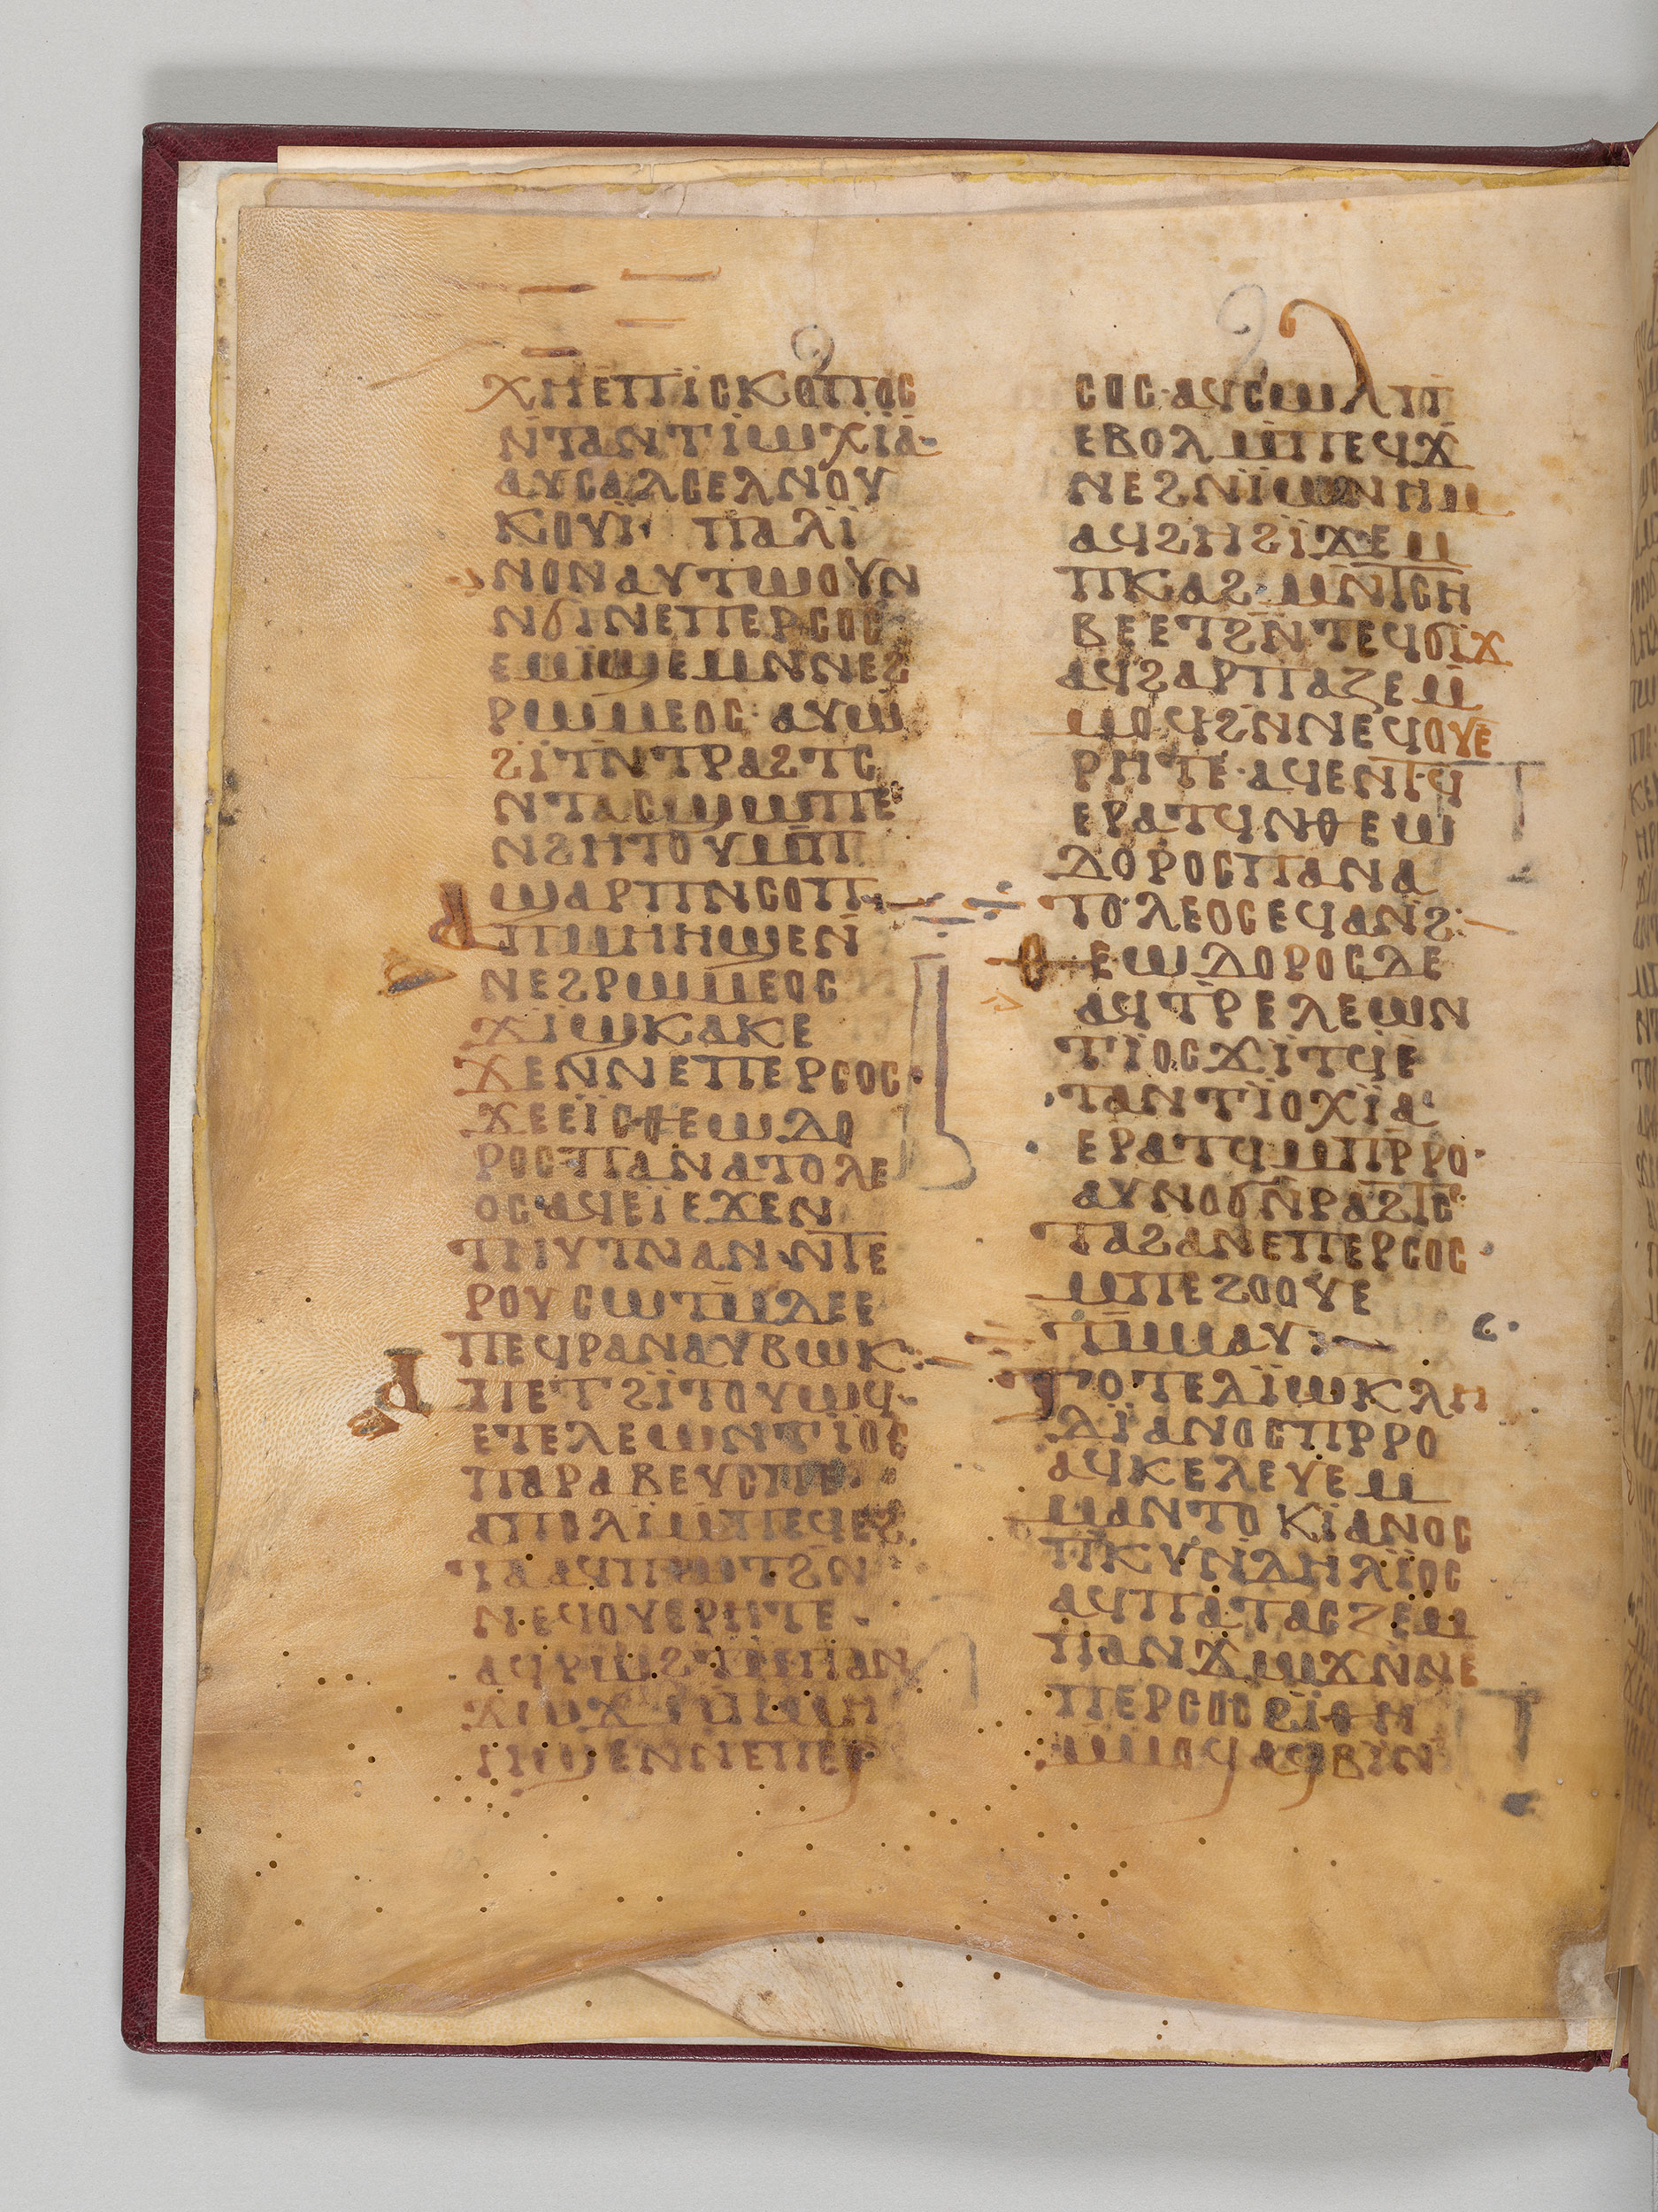 ϫⲏⲉⲡⲓⲥⲕⲟⲡⲟⲥ
ⲛ̄ⲧⲁⲛⲧⲓⲱⲭⲓⲁ·
ⲁⲩⲥⲁⲗⲥⲉⲗⲛⲟⲩ
ⲕⲟⲩⲓ̈· ⲡⲁⲗⲓ
ⲛⲟⲛⲁⲩⲧⲱⲟⲩⲛ
ⲛϭⲓⲛⲉⲡⲉⲣⲥⲟⲥ
ⲉⲙⲓϣⲉⲙⲛⲛⲉϩ
ⲣⲱⲙⲉⲟⲥ· ⲁⲩⲱ
ϩⲓⲧⲛⲧⲣⲁϩⲧⲥ
ⲛⲧⲁⲥϣⲱⲡⲉ
ⲛϩⲏⲧⲟⲩⲙ̄ⲡ
ϣⲁⲣⲡⲛⲥⲟⲡ·
ⲁⲡⲙⲏⲏϣⲉⲛ̄
ⲛⲉϩⲣⲱⲙⲉⲟⲥ
ϫⲓϣⲕⲁⲕⲉ
ϫⲉⲛⲛⲉⲡⲉⲣⲥⲟⲥ·
ϫⲉⲉⲓ̈ⲥⲑⲉⲱⲇⲟ
ⲣⲟⲥⲡⲁⲛⲁⲧⲟⲗⲉ
ⲟⲥ·ⲁϥⲉⲓ̈ⲉϫⲉⲛ
ⲧⲏⲩⲧⲛⲁⲛ·ⲛ̄ⲧⲉ
ⲣⲟⲩⲥⲱⲧⲙ̄ⲇⲉⲉ
ⲡⲉϥⲣⲁⲛⲁⲩⲃⲱⲕ:
ⲁⲡⲉⲧϩⲓ̈ⲧⲟⲩⲱϥ·
ⲉⲧⲉⲗⲉⲱⲛⲧⲓ̈ⲟⲥ
ⲡⲁⲣⲁⲃⲉⲩⲥⲡⲉ
ⲁⲡⲟⲗⲓ̈ⲙⲡⲉϥⲉϩ
ⲧⲁⲁϥⲡⲱⲧϩⲛ
ⲛⲉϥⲟⲩⲉⲣⲏⲧⲉ
ⲡⲙⲏ
ⲏϣⲉⲛⲛⲉⲡⲉⲣ
ⲥⲟⲥ·ⲁϥⲥⲱⲗⲡ
ⲉⲃⲟⲗⲙ̄ⲡⲉϥϫ
ⲛⲉϩⲛⲓ̈ⲱⲛⲏⲙ
ⲁϥϩⲏϩⲓϫⲉⲙ
ⲡⲕⲁϩ·ⲙⲛⲧⲥⲏ
ⲃⲉⲉⲧϩⲛ̄ⲧⲉϥϭⲓϫ
ⲁϥϩⲁⲣⲡⲁⲍⲉⲙ̄
ⲙⲟϥϩⲛⲛⲉϥⲟⲩⲉ
ⲣⲏⲧⲉ·ⲁϥⲉⲛⲧϥ
ⲉⲣⲁⲧϥⲛⲑⲉⲱ
ⲇⲟⲣⲟⲥⲡⲁⲛⲁ
ⲧⲟ·ⲗⲉⲟⲥⲉϥⲁⲛϩ:
ⲑⲉⲱⲇⲟⲣⲟⲥⲇⲉ
ⲁϥⲧⲣⲉⲗⲉⲱⲛ
ⲧⲓⲟⲥϫⲓⲧϥⲉ
ⲧⲁⲛⲧⲓ̈ⲟⲭⲓ̈ⲁ
ⲉⲣⲁⲧϥⲙ̄ⲡⲣ̄ⲣⲟ·
ⲁⲩⲛⲟϭⲛ̄ⲣⲁϩⲧⲥ
ⲧⲁϩⲁⲛⲉⲡⲉⲣⲥⲟⲥ·
ⲙⲡⲉϩⲟⲟⲩⲉ
ⲧⲙ̄ⲙⲁⲩ:
ⲧⲟⲧⲉⲇⲓ̈ⲱⲕⲗⲏ
ⲇⲓ̈ⲁⲛⲟⲥⲡⲣⲣⲟ
ⲁϥⲕⲉⲗⲉⲩⲉⲙ
ⲙⲁⲛⲧⲟⲕⲓⲁⲛⲟⲥ
ⲡⲕⲩⲛⲇⲏⲗⲓ̈ⲟⲥ
ⲁϥⲡⲁⲧⲁⲥⲥⲉⲙ
ⲡⲁⲛϫⲱϫⲛⲛⲉ
ⲡⲉⲣⲥⲟⲥϩⲓⲑⲏ
ⲙⲙⲟϥ